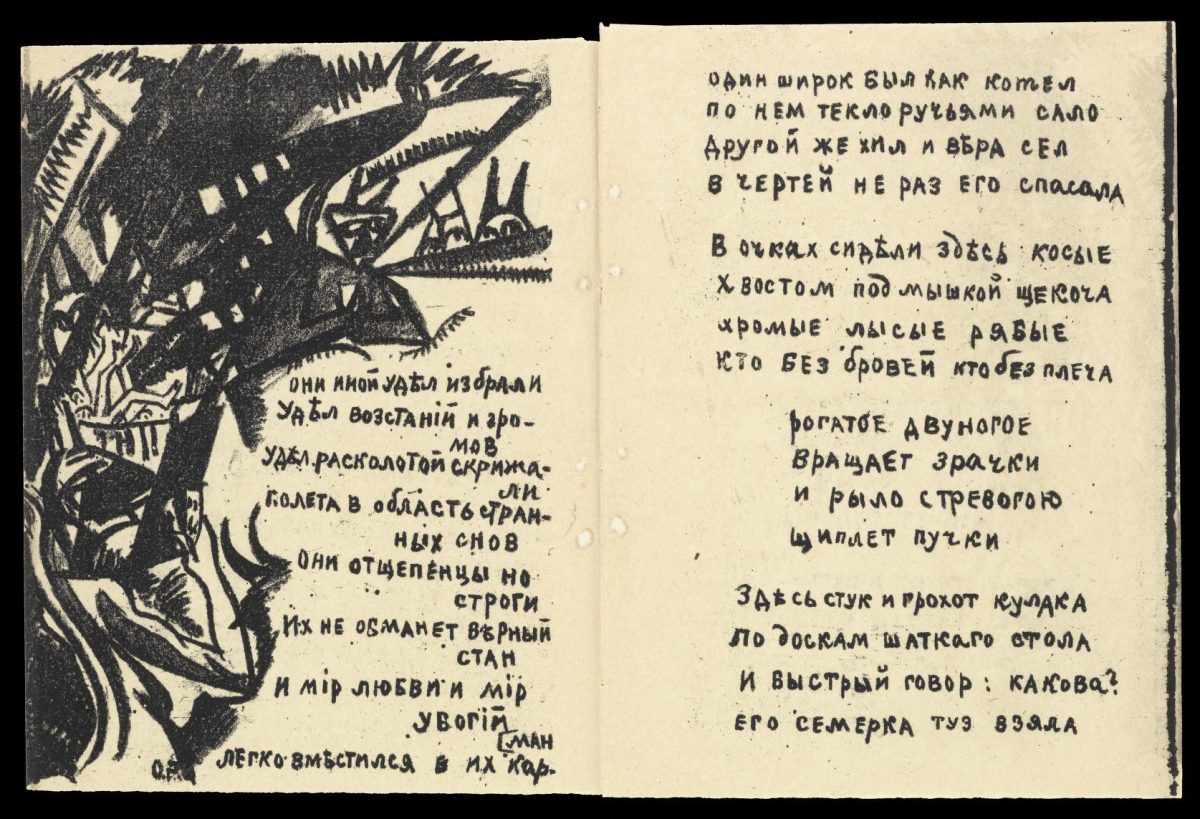 они иной удѣл избрали
удѣл возстанiй и гро-
мов
удѣл расколотой скрижа-
ли
полета в область стран-
ных снов
они отщепенцы но
строги
Их не обманет вѣрный
стан
и мiр любви и мiр
убогiй
[ман
легко вмѣстился в их кар-
О.Р.
один широк был как котел
по нем текло ручьями сало
другой же хил и вѣра сел
в чертей не раз его спасала
В очках сидѣли здѣсь косые
хвостом под мышкой щекоча
хромые лысые рябые
кто без бровей кто без плеча
рогатое двуногое
вращает зрачки
и рыло с тревогою
щиплет пучки
Здѣсь стук и грохот кулака
по доскам шаткаго стола
И быстрый говор: какова?
его семерка туз взяла